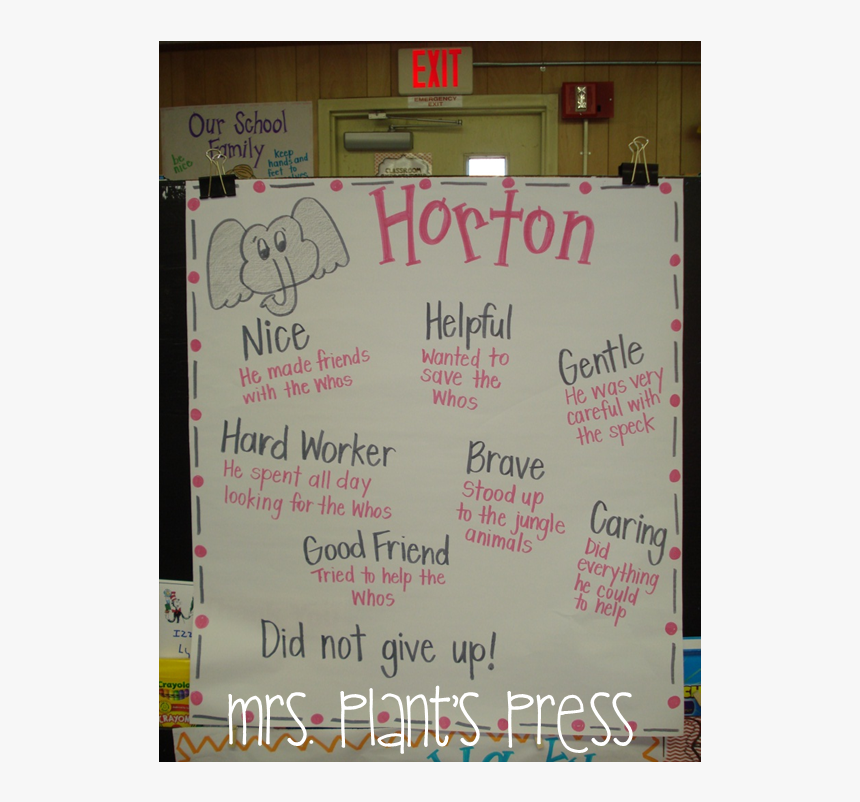 EXIT
EMERGENCY
EXIT
Our School
Family
be
nice
keep
hands and
feet to
CLASSROOM
Horton
Nice
He made friends
with the Whos
Helpful
Wanted to
save the
Whos
Gentle
He was very
careful with
the speck
Hard Worker
He spent all day
looking for the Whos
Brave
Stood up
to the jungle
animals
Caring
Did
everything
he could
to help
Good Friend
Tried to help the
Whos
Did not give up!
Crayola
CRAYON
mrs. plant's press